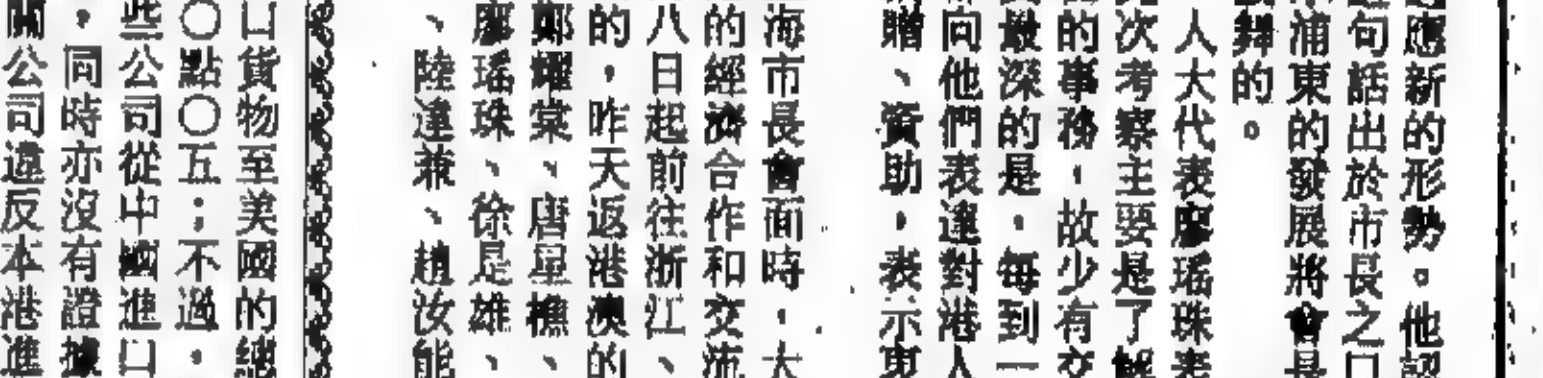 應新的形勢。他認
句話出於市長之口
浦東的發展將會是
舞的。
人大代表廖瑤珠表
次考察主要是了解
的事務，故少有交
最深的是，每到一
向他們表達對港人
贈、資助，表示衷
海市長會面時，大
的經濟合作和交流
八日起前往浙江、
的，昨天返港澳的
鄭耀棠、唐星樵、
廖瑤珠、徐是雄、
、陸達兼、趙汝能
口貨物至美國的總
〇點〇五；不過，
些公司從中國進口
，同時亦沒有證據
公司違反本港進